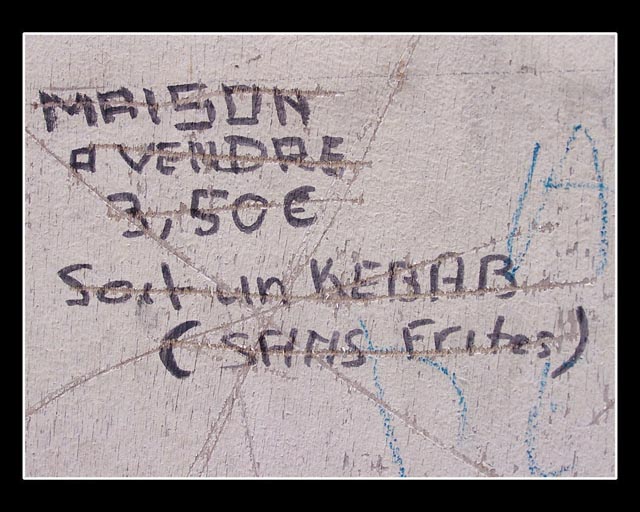 MAISON
a VENDRE
3,50€
Soit un KEBAB
(SANS Frites)